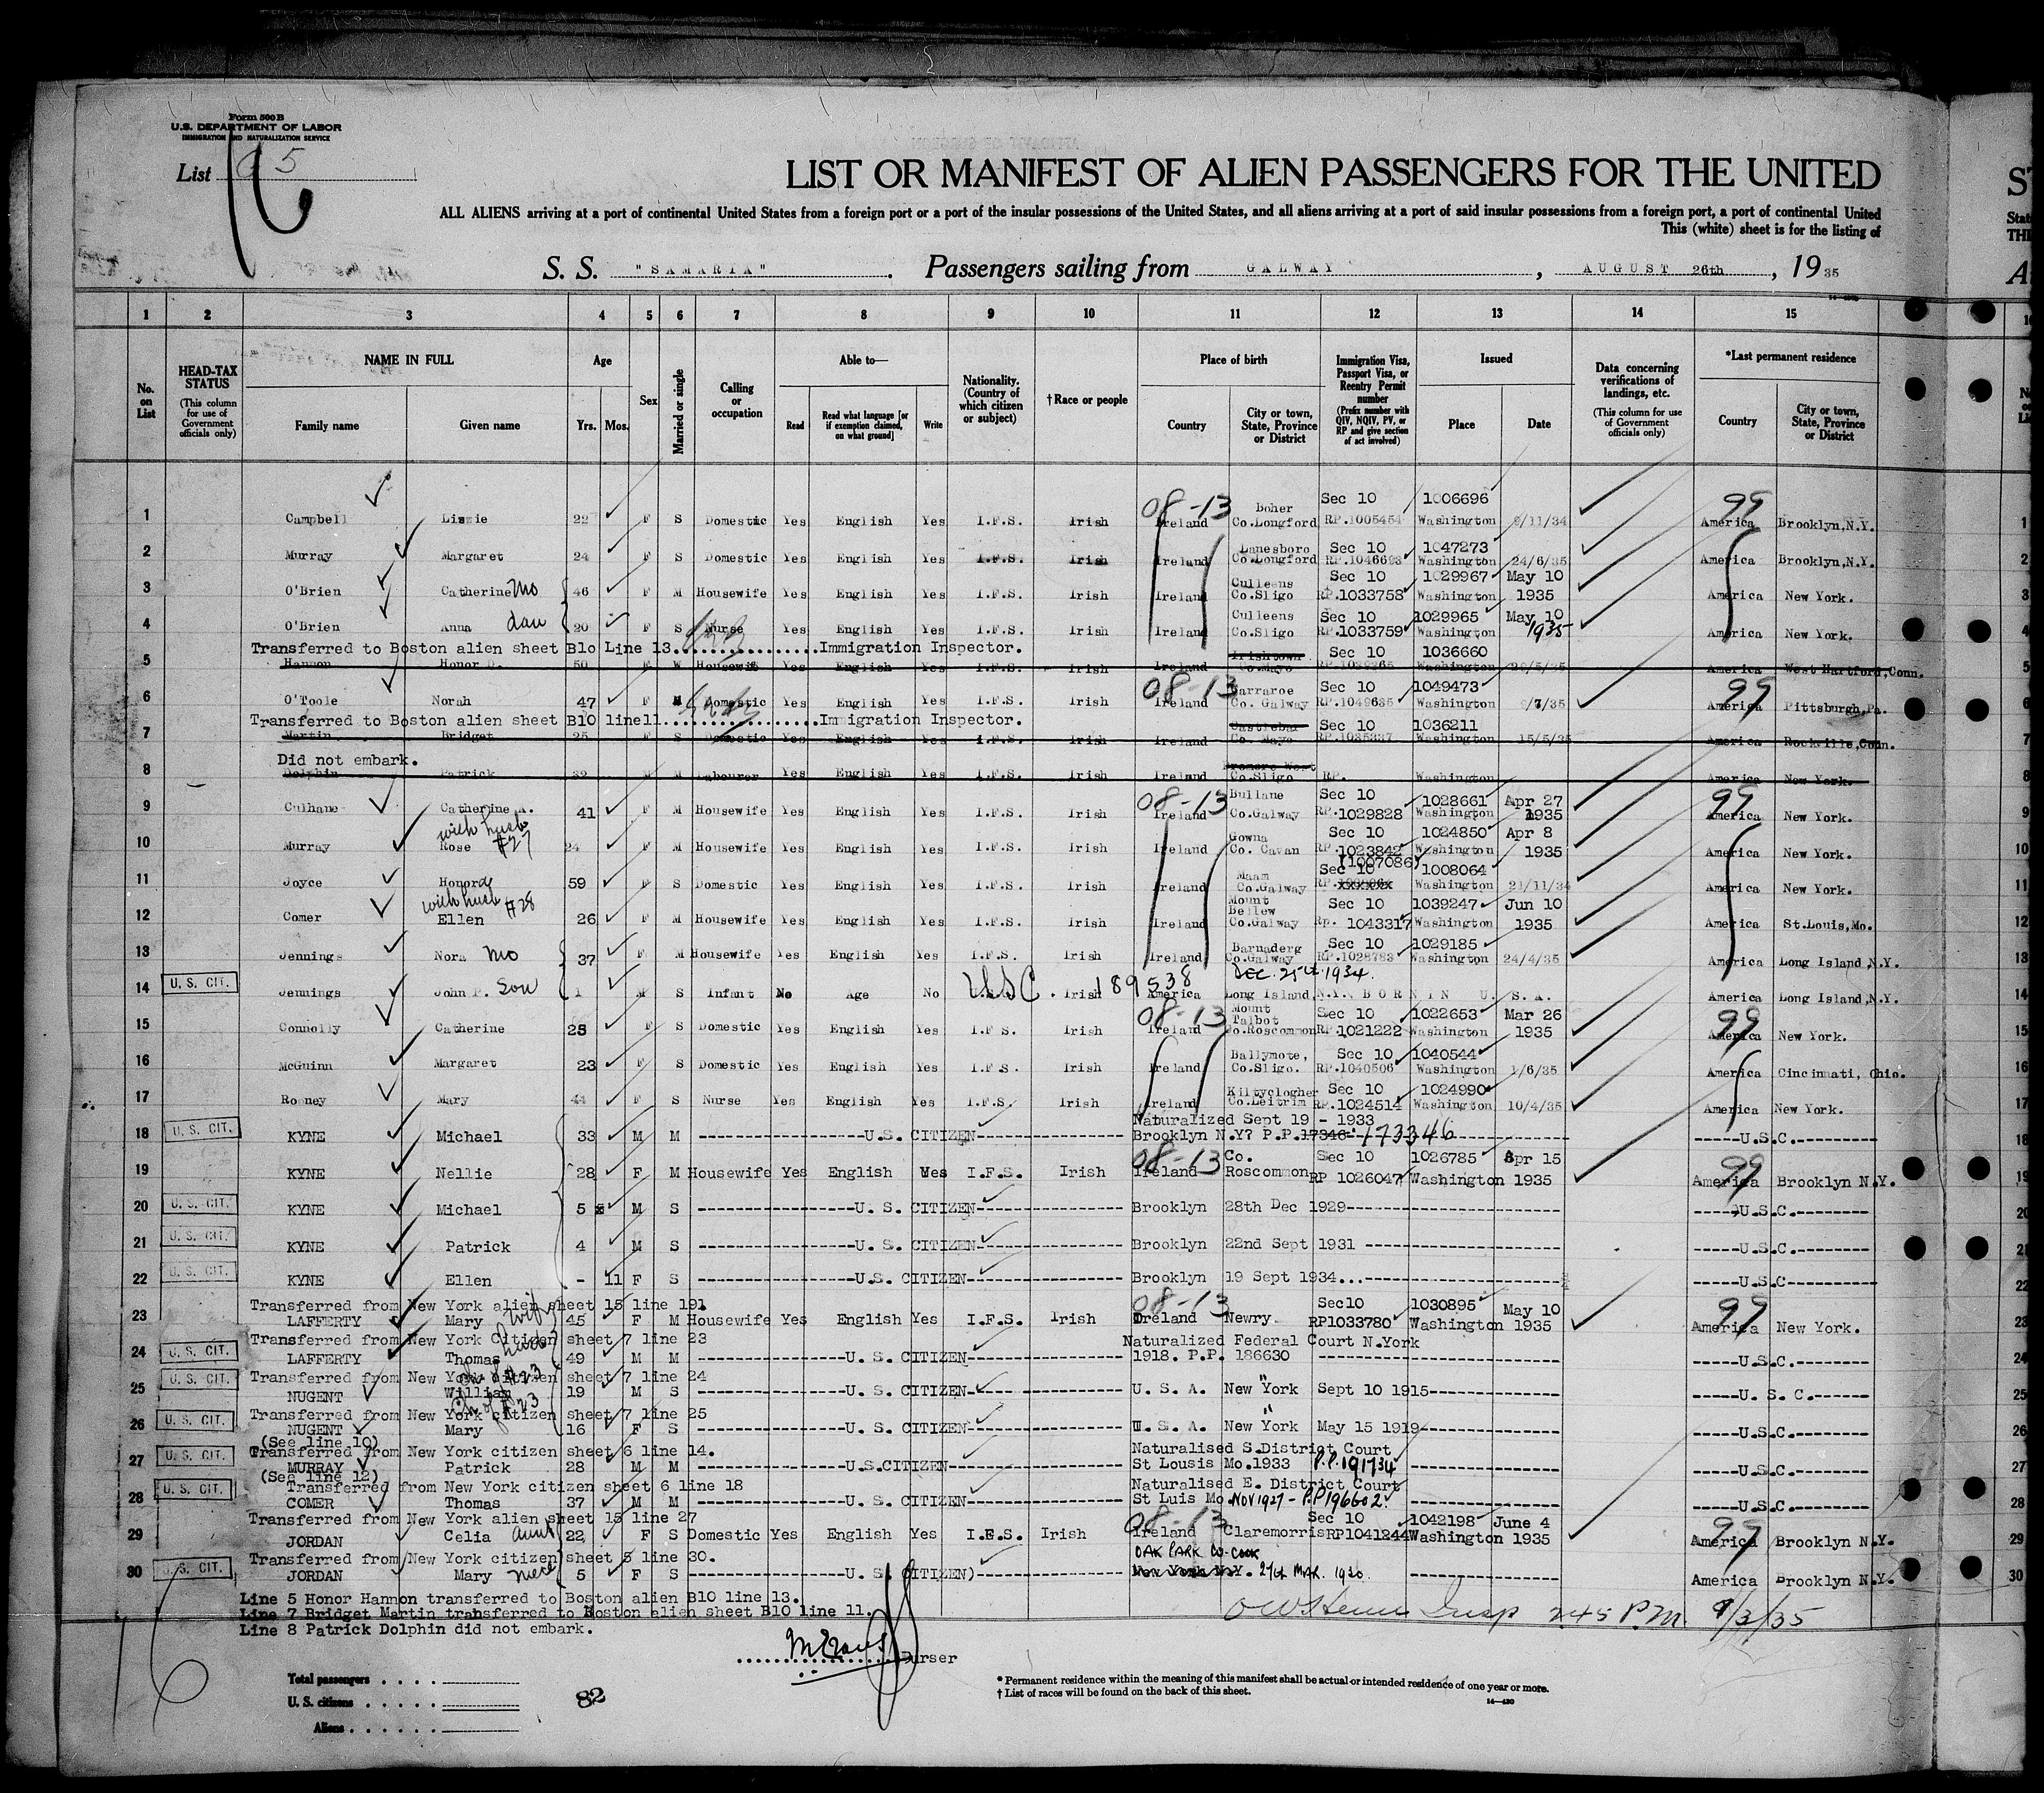 Form 500B
U.S. DEPARTMENT OF LABOR
IMMIGRATION AND NATURALIZATION SERVICE
List 5
16
LIST OR MANIFEST OF ALIEN PASSENGERS FOR THE UNITED
ALL ALIENS arriving at a port of continental United States from a foreign port or a port of the insular possessions of the United States, and all aliens arriving at a port of said insular possessions from a foreign port, a port of continental United
This (white) sheet is for the listing of
S. S. "SAMARIA". Passengers sailing from GALWAY, AUGUST 26th, 19 35
1 2 3 4 5 6 7 8 9 10 11 12 13 14 15
No. on List
HEAD-TAX STATUS (This column for use of Government officials only)
NAME IN FULL
Family name Given name
Age Yrs. Mos.
Sex
Married or single
Calling or occupation
Able to—
Read Read what language [or if exemption claimed, on what ground] Write
Nationality. (Country of which citizen or subject)
†Race or people
Place of birth
Country City or town, State, Province or District
Immigration Visa, Passport Visa, or Reentry Permit number (Prefix number with QIV, NQIV, PV, or RP and give section of act involved)
Issued
Place Date
Data concerning verifications of landings, etc. (This column for use of Government officials only)
*Last permanent residence
Country City or town, State, Province or District
1 Campbell Lizzie 22 F S Domestic Yes English Yes I.F.S. Irish 08-13 Ireland Boher Co.Longford Sec 10 RP.1005454 1006696 Washington 9/11/34 99 America Brooklyn,N.Y. 1
2 Murray Margaret 24 F S Domestic Yes English Yes I.F.S. Irish Ireland Lanesboro Co.Longford Sec 10 RP.1046693 1047273 Washington 24/6/35 America Brooklyn,N.Y. 2
3 O'Brien Catherine Mo 46 F M Housewife Yes English Yes I.F.S. Irish Ireland Culleens Co.Sligo Sec 10 RP.1033758 1029967 Washington May 10 1935 America New York. 3
4 O'Brien Anna dau 20 F S Nurse Yes English Yes I.F.S. Irish Ireland Culleens Co.Sligo Sec 10 RP.1033759 1029965 Washington May 10 1935 America New York. 4
Transferred to Boston alien sheet B10 Line 13..................Immigration Inspector.
5 Hannon Honor 50 F W Housewife Yes English Yes I.F.S. Irish Ireland Irishtown Co.Mayo Sec 10 1036660 Washington America West Hartford,Conn. 5
6 O'Toole Norah 47 F Domestic Yes English Yes I.F.S. Irish 08-13 Ireland Carraroe Co. Galway Sec 10 RP.1049635 1049473 Washington 9/7/35 99 America Pittsburgh,Pa. 6
Transferred to Boston alien sheet B10 line11..................Immigration Inspector.
7 Martin Bridget 25 F S Domestic Yes English Yes I.F.S. Irish Ireland Castlebar Co. Mayo Sec 10 RP.1035337 1036211 Washington 15/5/35 America Rockville,Conn. 7
Did not embark.
8 Dolphin Patrick 32 M M Labourer Yes English Yes I.F.S. Irish Ireland Dromore West Co.Sligo RP. Washington America New York. 8
9 Culhane Catherine A. 41 F M Housewife Yes English Yes I.F.S. Irish 08-13 Ireland Bullane Co.Galway Sec 10 RP.1029828 1028661 Washington Apr 27 1935 99 America New York. 9
with husb #27
10 Murray Rose 24 F M Housewife Yes English Yes I.F.S. Irish Ireland Gowna Co. Cavan Sec 10 RP.1023842 1024850 Washington Apr 8 1935 America New York. 10
11 Joyce Honor 59 F S Domestic Yes English Yes I.F.S. Irish Ireland Maam Co.Galway (1007086) Sec 10 RP.xxxxxxx 1008064 Washington 21/11/34 America New York. 11
with husb #28
12 Comer Ellen 26 F M Housewife Yes English Yes I.F.S. Irish Ireland Mount Bellew Co.Galway Sec 10 Rp. 1043317 1039247 Washington Jun 10 1935 America St.Louis,Mo. 12
13 Jennings Nora Mo 37 F M Housewife Yes English Yes I.F.S. Irish Ireland Barnaderg Co.Galway Sec 10 RP.1028783 1029185 Washington 24/4/35 America Long Island,N.Y. 13
U. S. CIT. 14 Jennings John P. Son 1 M S Infant No Age No USC. Irish 189538 America Long Island,N.Y. BORN IN U. S. A. DEC. 25th 1934. America Long Island,N.Y. 14
15 Connolly Catherine 28 F S Domestic Yes English Yes I.F S. Irish 08-13 Ireland Mount Talbot Co.Roscommon Sec 10 RP.1021222 1022653 Washington Mar 26 1935 99 America New York. 15
16 McGuinn Margaret 23 F S Domestic Yes English Yes I.F.S. Irish Ireland Ballymote, Co.Sligo. Sec 10 RP.1040506 1040544 Washington 1/6/35 America Cincinnati, Ohio. 16
17 Rooney Mary 44 F S Nurse Yes English Yes I.F.S. Irish Ireland Kiltyclogher Co.Leitrim Sec 10 RP.1024514 1024990 Washington 10/4/35 America New York. 17
U. S. CIT. 18 KYNE Michael 33 M M U.S. CITIZEN Naturalized Sept 19 - 1933 Brooklyn N.Y? P.P.17346 173346 U.S.C.
19 KYNE Nellie 28 F M Housewife Yes English Yes I.F.S. Irish 08-13 Ireland Co. Roscommon Sec 10 RP 1026047 1026785 Washington Apr 15 1935 99 America Brooklyn N.Y. 19
U. S. CIT. 20 KYNE Michael 5 M S U. S. CITIZEN Brooklyn 28th Dec 1929 U.S.C. 20
U. S. CIT. 21 KYNE Patrick 4 M S U. S. CITIZEN Brooklyn 22nd Sept 1931 U.S.C. 21
U. S. CIT. 22 KYNE Ellen - 11 F S U.S. CITIZEN Brooklyn 19 Sept 1934... U.S.C 22
Transferred from New York alien sheet 15 line 191.
23 LAFFERTY Mary wife 45 F M Housewife Yes English Yes I.F.S. Irish 08-13 Ireland Newry. Sec10 RP1033780 1030895 Washington May 10 1935 99 America New York. 23
Transferred from New York Citizen sheet 7 line 23
U. S. CIT. 24 LAFFERTY Thomas husb 49 M M U. S. CITIZEN Naturalized Federal Court N.York 1918. P.P. 186630 U.S.C. 24
Transferred from New York citizen sheet 7 line 24
U. S. CIT. 25 NUGENT William ch of #23 19 M S U. S. CITIZEN U. S. A. New York Sept 10 1915 U. S. C. 25
Transferred from New York citizen sheet 7 line 25
U. S. CIT. 26 NUGENT Mary ch of #23 16 F S U. S. CITIZEN U. S. A. New York May 15 1919 U.S.C. 26
(See line 10)
Transferred from New York citizen sheet 6 line 14.
U. S. CIT. 27 MURRAY Patrick 28 M M U.S.CITIZEN Naturalised S.District Court St Lousis Mo.1933 P.P.191734 U.S.C. 27
(See line 12)
Transferred from New York citizen sheet 6 line 18
U. S. CIT. 28 COMER Thomas 37 M M U. S. CITIZEN Naturalised E. District Court St Luis Mo NOV 1927 - P.P 196602. U.S.C. 28
Transferred from New York alien sheet 15 line 27
29 JORDAN Celia aunt 22 F S Domestic Yes English Yes I.F.S. Irish 08-13 Ireland Claremorris Sec 10 RP1041244 1042198 Washington June 4 1935 99 America Brooklyn N.Y. 29
Transferred from New York citizen sheet 5 line 30.
U. S. CIT. 30 JORDAN Mary niece 5 F S U. S. CITIZEN) OAK PARK CO-COOK New York N.Y. 27th MAR. 1930 America Brooklyn N.Y. 30
Line 5 Honor Hannon transferred to Boston alien B10 line 13.
Line 7 Bridget Martin transferred to Boston alien sheet B10 line 11.
Line 8 Patrick Dolphin did not embark.
Insp 245 P.M. 9/3/35
Purser
Total passengers . . . .
U. S. citizens . . . . .
Aliens . . . . . .
82
* Permanent residence within the meaning of this manifest shall be actual or intended residence of one year or more.
† List of races will be found on the back of this sheet.